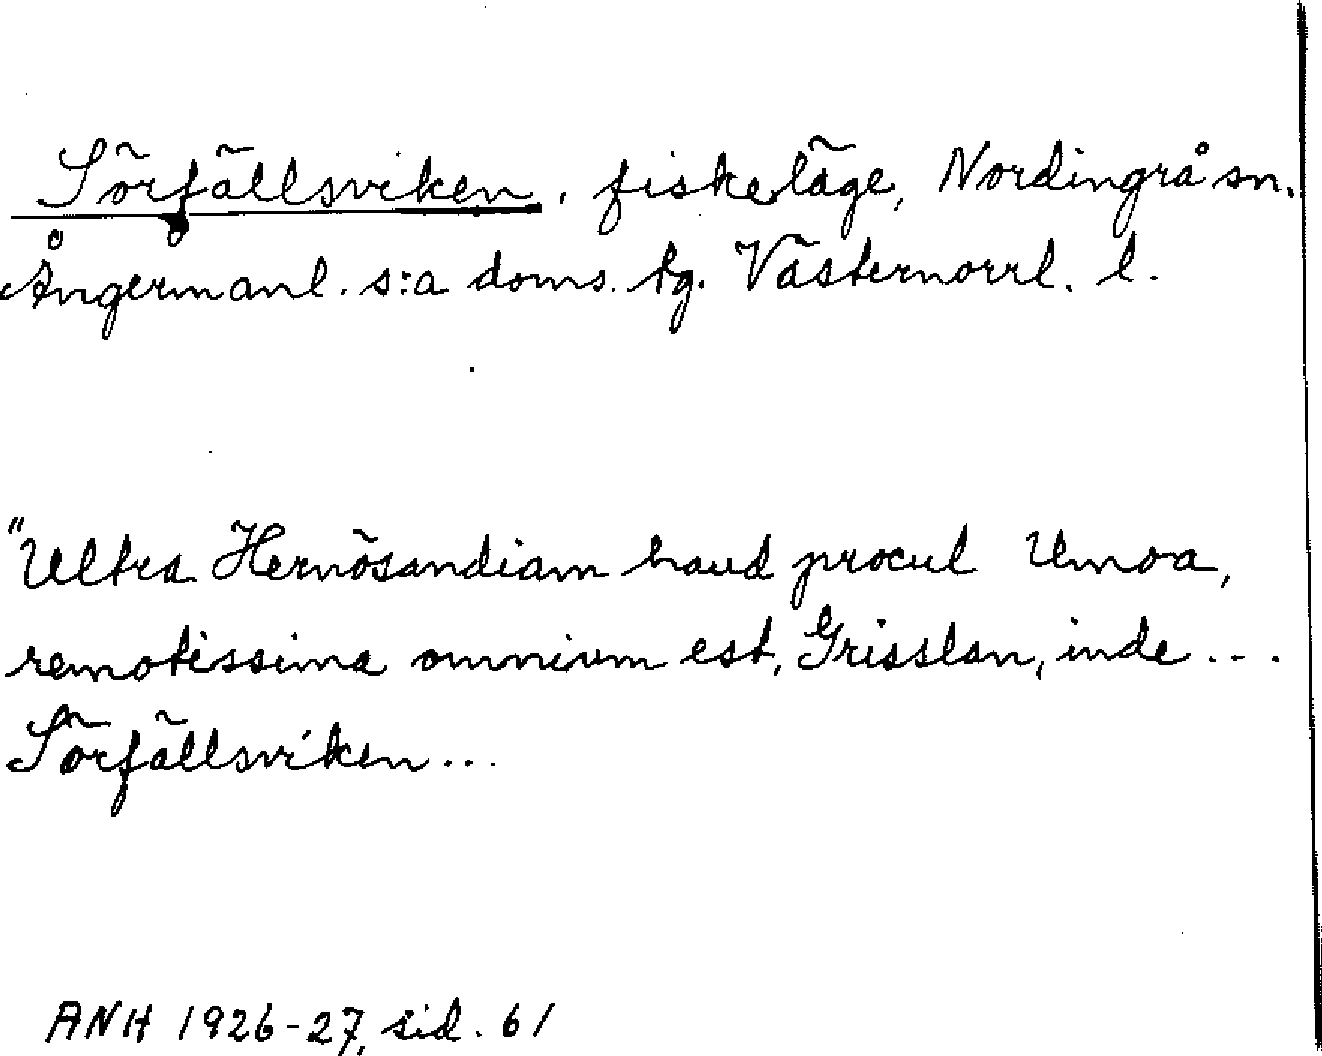 Sörfällsviken, fiskeläge, Nordingrå sn.
Ångermanl. s:a doms. tg. Västernorrl. l.
"Ultra Hernösandiam haud procul Umoa,
remotissima omnium est, Grisslan, inde ...
Sörfällsviken ...
ANH 1926-27, sid. 61